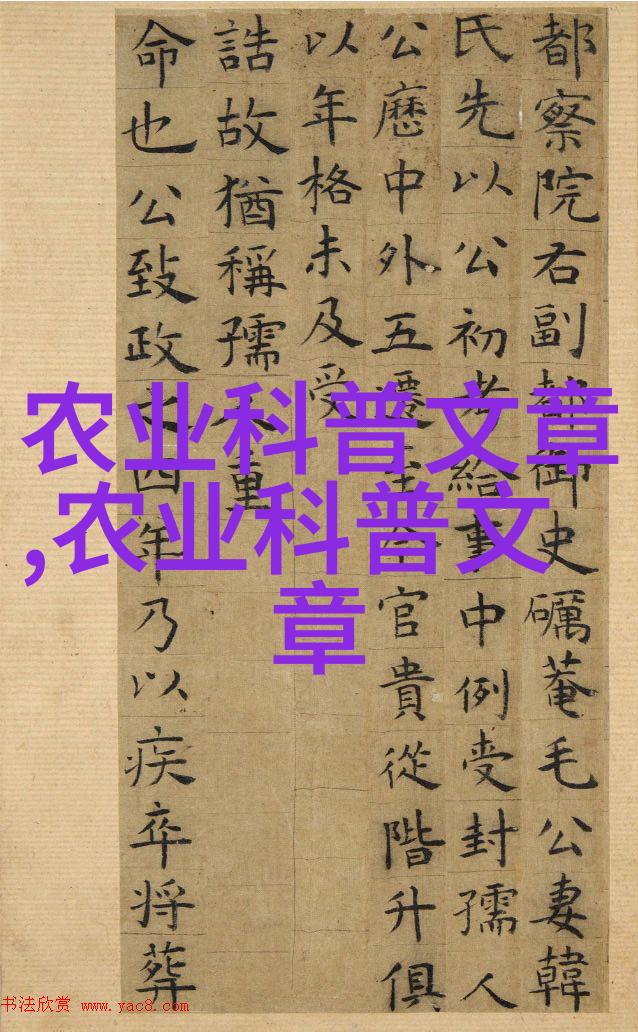 都察院右副都御史礪菴毛公妻韓
氏先以公初考給事中例受封孺人
公歷中外五遷至今官貴從階升俱
以年格未及受
誥故猶稱孺人重
命也公致政之四年乃以疾卒将葬
农业科普文章
,农业科普文
章
书法欣赏 www.yac8.com